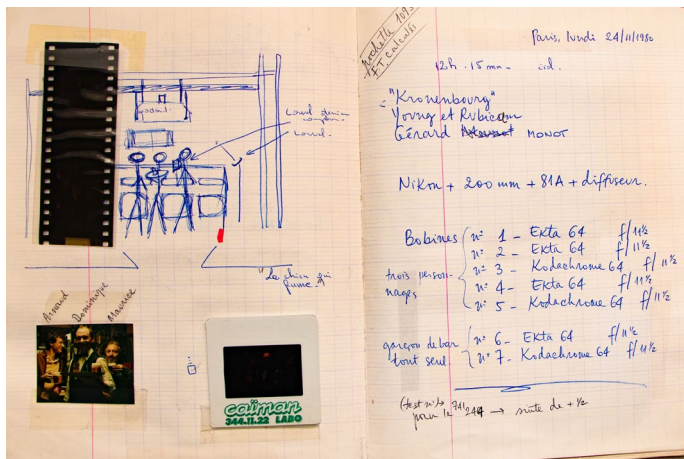 Loutel
"Le chien qui
fume"
Arnaud
Dominique
Maurice
caïman
344.11.22 LABO
pochette 109
Paris, lundi 24/11/1980
12h. 15 mn -
"Kronenbourg"
Young et Rubicam
Gérard MONOT
Nikon + 200 mm + 81A + diffuseur.
Bobines
trois person-
nages
n° 1 - Ekta 64 f/11 ½
n° 2 - Ekta 64 f/11 ½
n° 3 - Kodachrome 64 f/11 ½
n° 4 - Ekta 64 f/11 ½
n° 5 - Kodachrome 64 f/11 ½
garçon de bar
tout seul
n° 6 - Ekta 64 f/11 ½
n° 7 - Kodachrome 64 f/11 ½
pour le 244 → suite de + ½